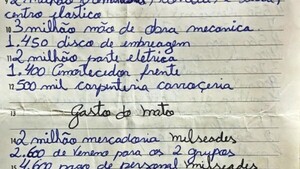 2 milhão
centro plastico
10 3 milhão mão de obra mecanica
1.450 disco de embreagem
11 2 milhão parte eletrica
1.400 Amortecedor frente
12 500 mil carpenteria carraçeria
13 Gasto do mato
14 2 milhão mercadoria milseades
2.600 de Veneno para os 2 grupos
15 4.600 pago de personal milseades